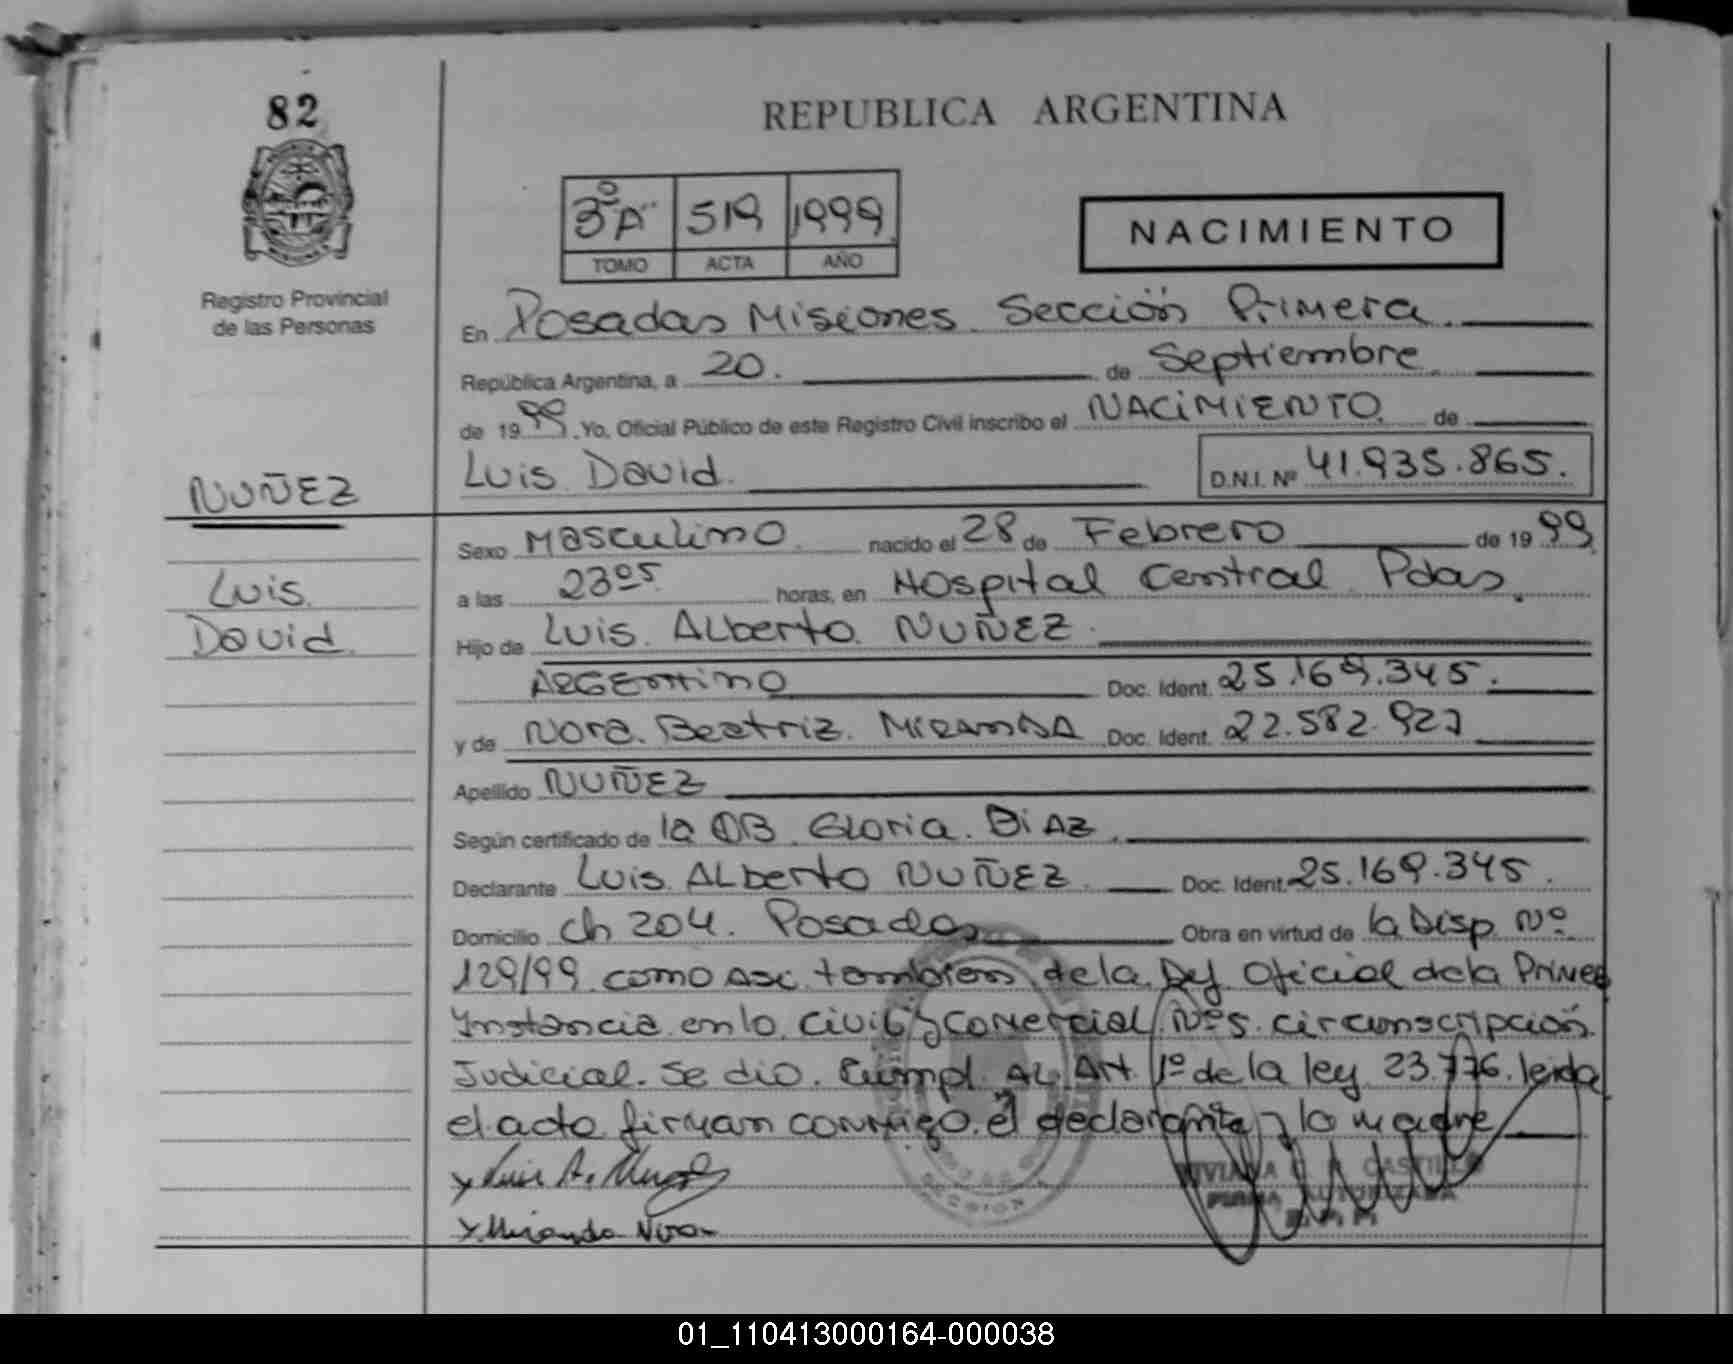 82
REPUBLICA ARGENTINA
3º "A" 519 1999
TOMO ACTA AÑO
NACIMIENTO
Registro Provincial
de las Personas
En Posadas Misiones Sección Primera
República Argentina, a 20. de Septiembre
de 1999. Yo, Oficial Público de este Registro Civil inscribo el NACIMIENTO de
Luis David. D.N.I. Nº 41.935.865.
NUÑEZ
Luis
David
Sexo Masculino nacido el 28 de Febrero de 1999
a las 23 05 horas, en Hospital Central Pdas.
Hijo de Luis Alberto NUÑEZ
ARGENtino Doc. Ident. 25.169.345.
y de Nora Beatriz MIRANDA Doc. Ident. 22.582.927
Apellido NUÑEZ
Según certificado de la OB Gloria DiAZ
Declarante Luis ALberto NUÑEZ Doc. Ident. 25.169.345.
Domicilio Ch 204. Posadas Obra en virtud de la Disp. Nº
129/99 como asi tambien de la Def Oficial de la Primera
Instancia en lo Civil y Comercial Nº 5 circunscripción
Judicial. Se dio Cumpl. AL Art. 1º de la ley 23.776. leida
el acta firman conmigo el declarante y la madre
x Luis A.
x Miranda Nora
VIVIANA CASTILLO
FIRMA AUTORIZADA
01_110413000164-000038